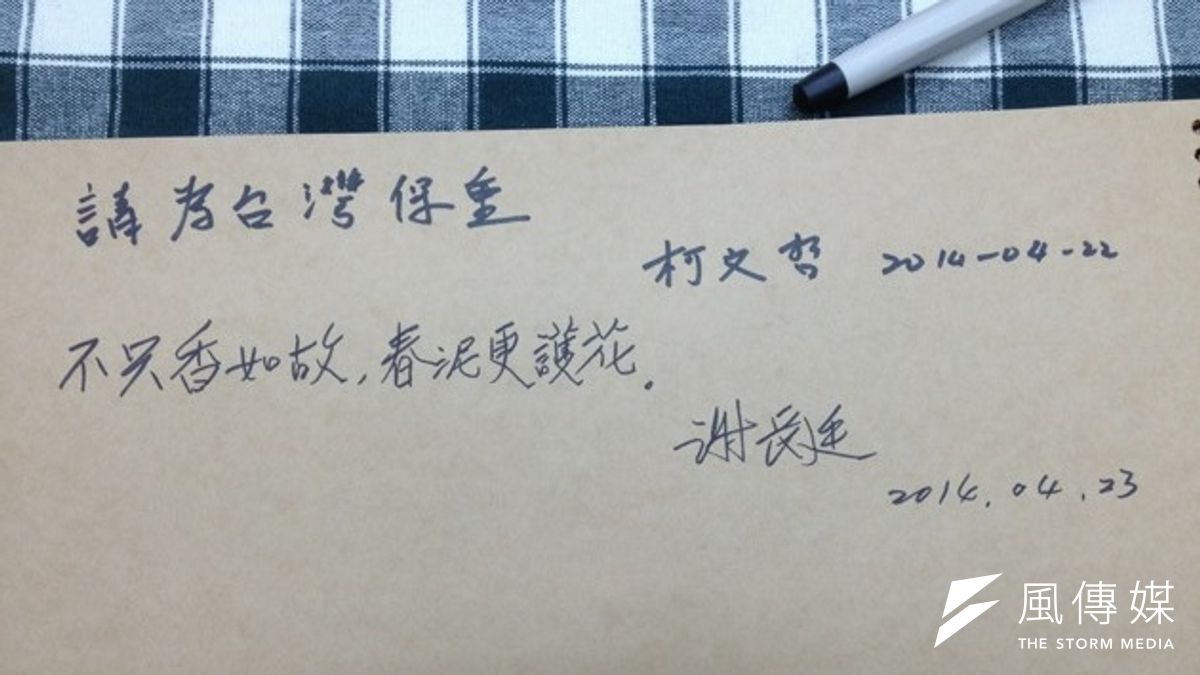 請為台灣保重
柯文哲 2014-04-22
不只香如故,春泥更護花。
謝長廷
2014.04.23
風傳媒
THE STORM MEDIA